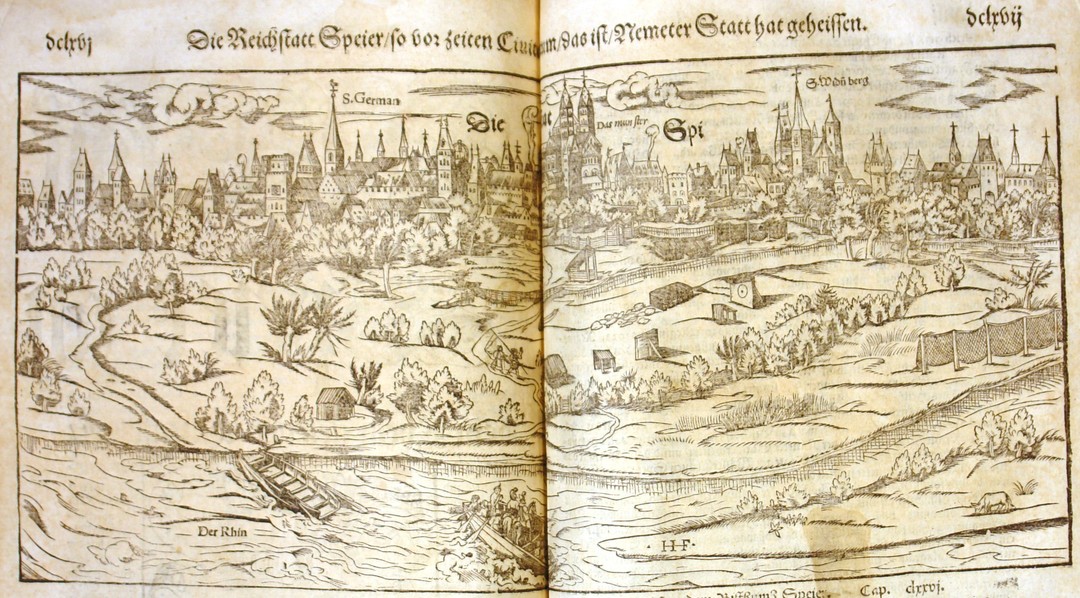 dclxvj
Die Reichstatt Speier/so vor zeiten
um/das ist/Nemeter Statt hat geheissen.
dclxvij
S. German
Die
Das munster
Spi
Der Rhin
·H·F·
Cap. clxxvj.